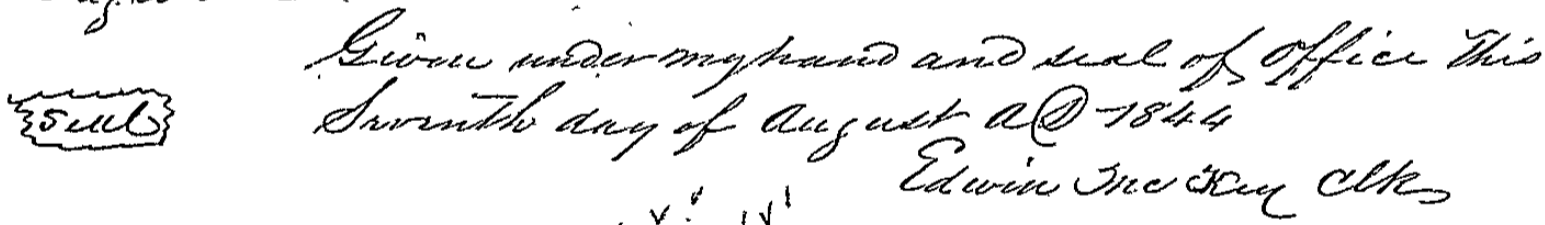 Given under my hand and seal of office This
Seal Seventh day of August AD 1844
Edwin McKey Clk